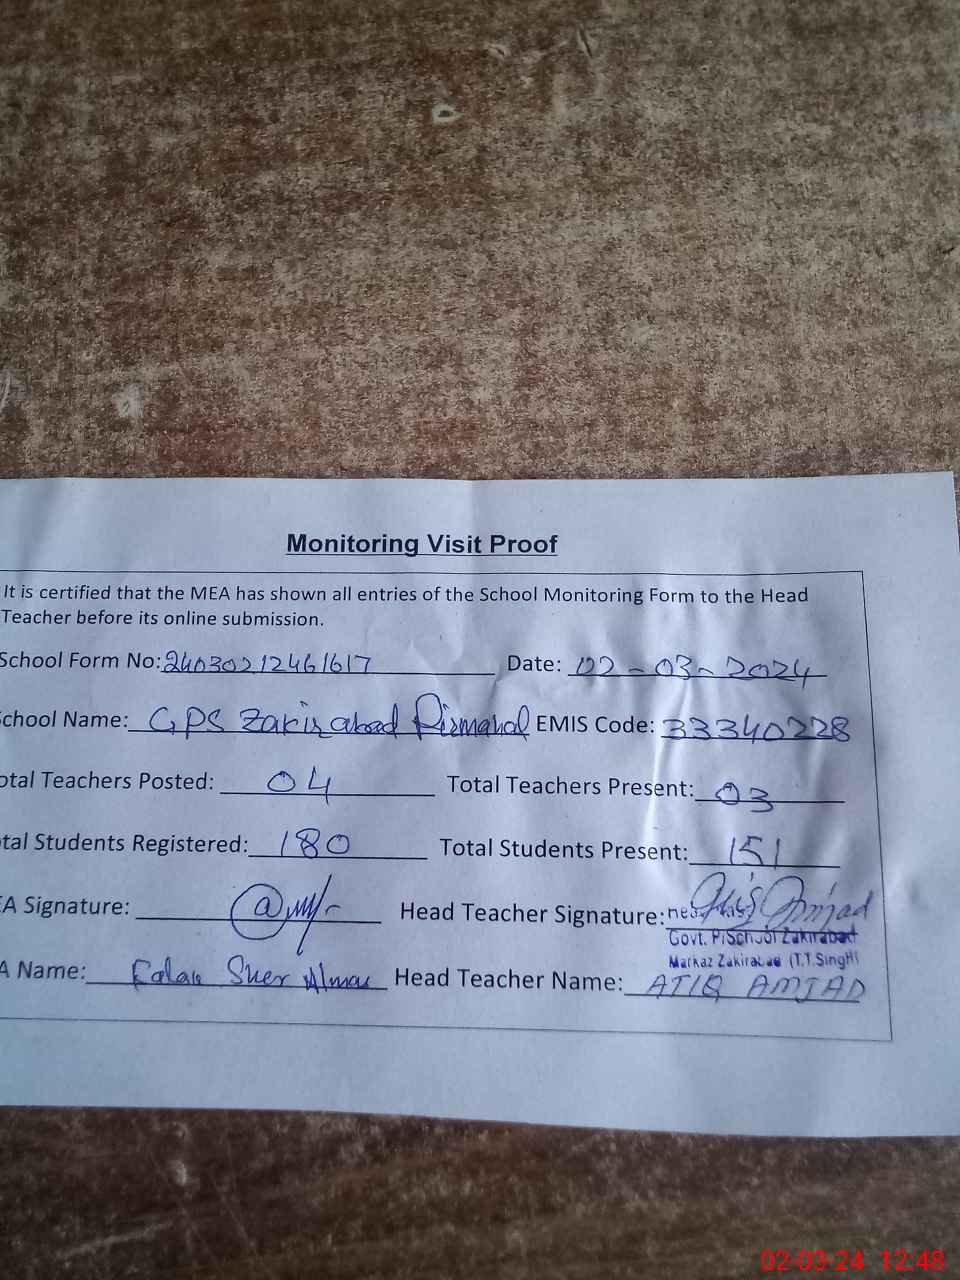 Monitoring Visit Proof
It is certified that the MEA has shown all entries of the School Monitoring Form to the Head
Teacher before its online submission.
School Form No: 24030212461617 Date: 02-03-2024
chool Name: GPS Zakirabad Pirmahal EMIS Code: 33340228
otal Teachers Posted: 04 Total Teachers Present: 03
tal Students Registered: 180 Total Students Present: 151
EA Signature: Head Teacher Signature: Atiq Amjad
Govt. P/School Zakirabad
Markaz Zakirabad (T.T.Singh)
A Name: Sher Head Teacher Name: ATIQ AMJAD
02-03-24 12:48